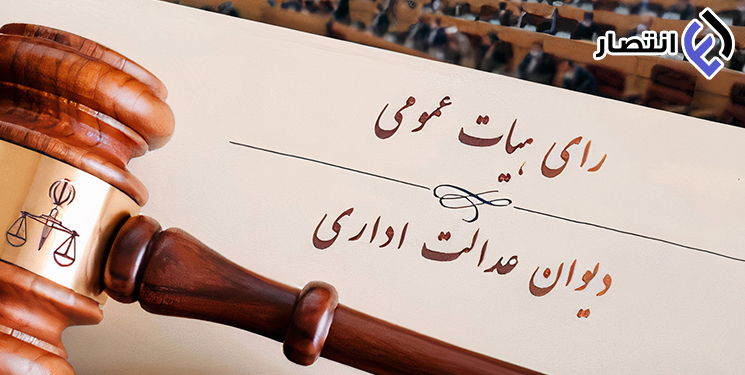 انتصار
رای هیات عمومی
دیوان عدالت اداری